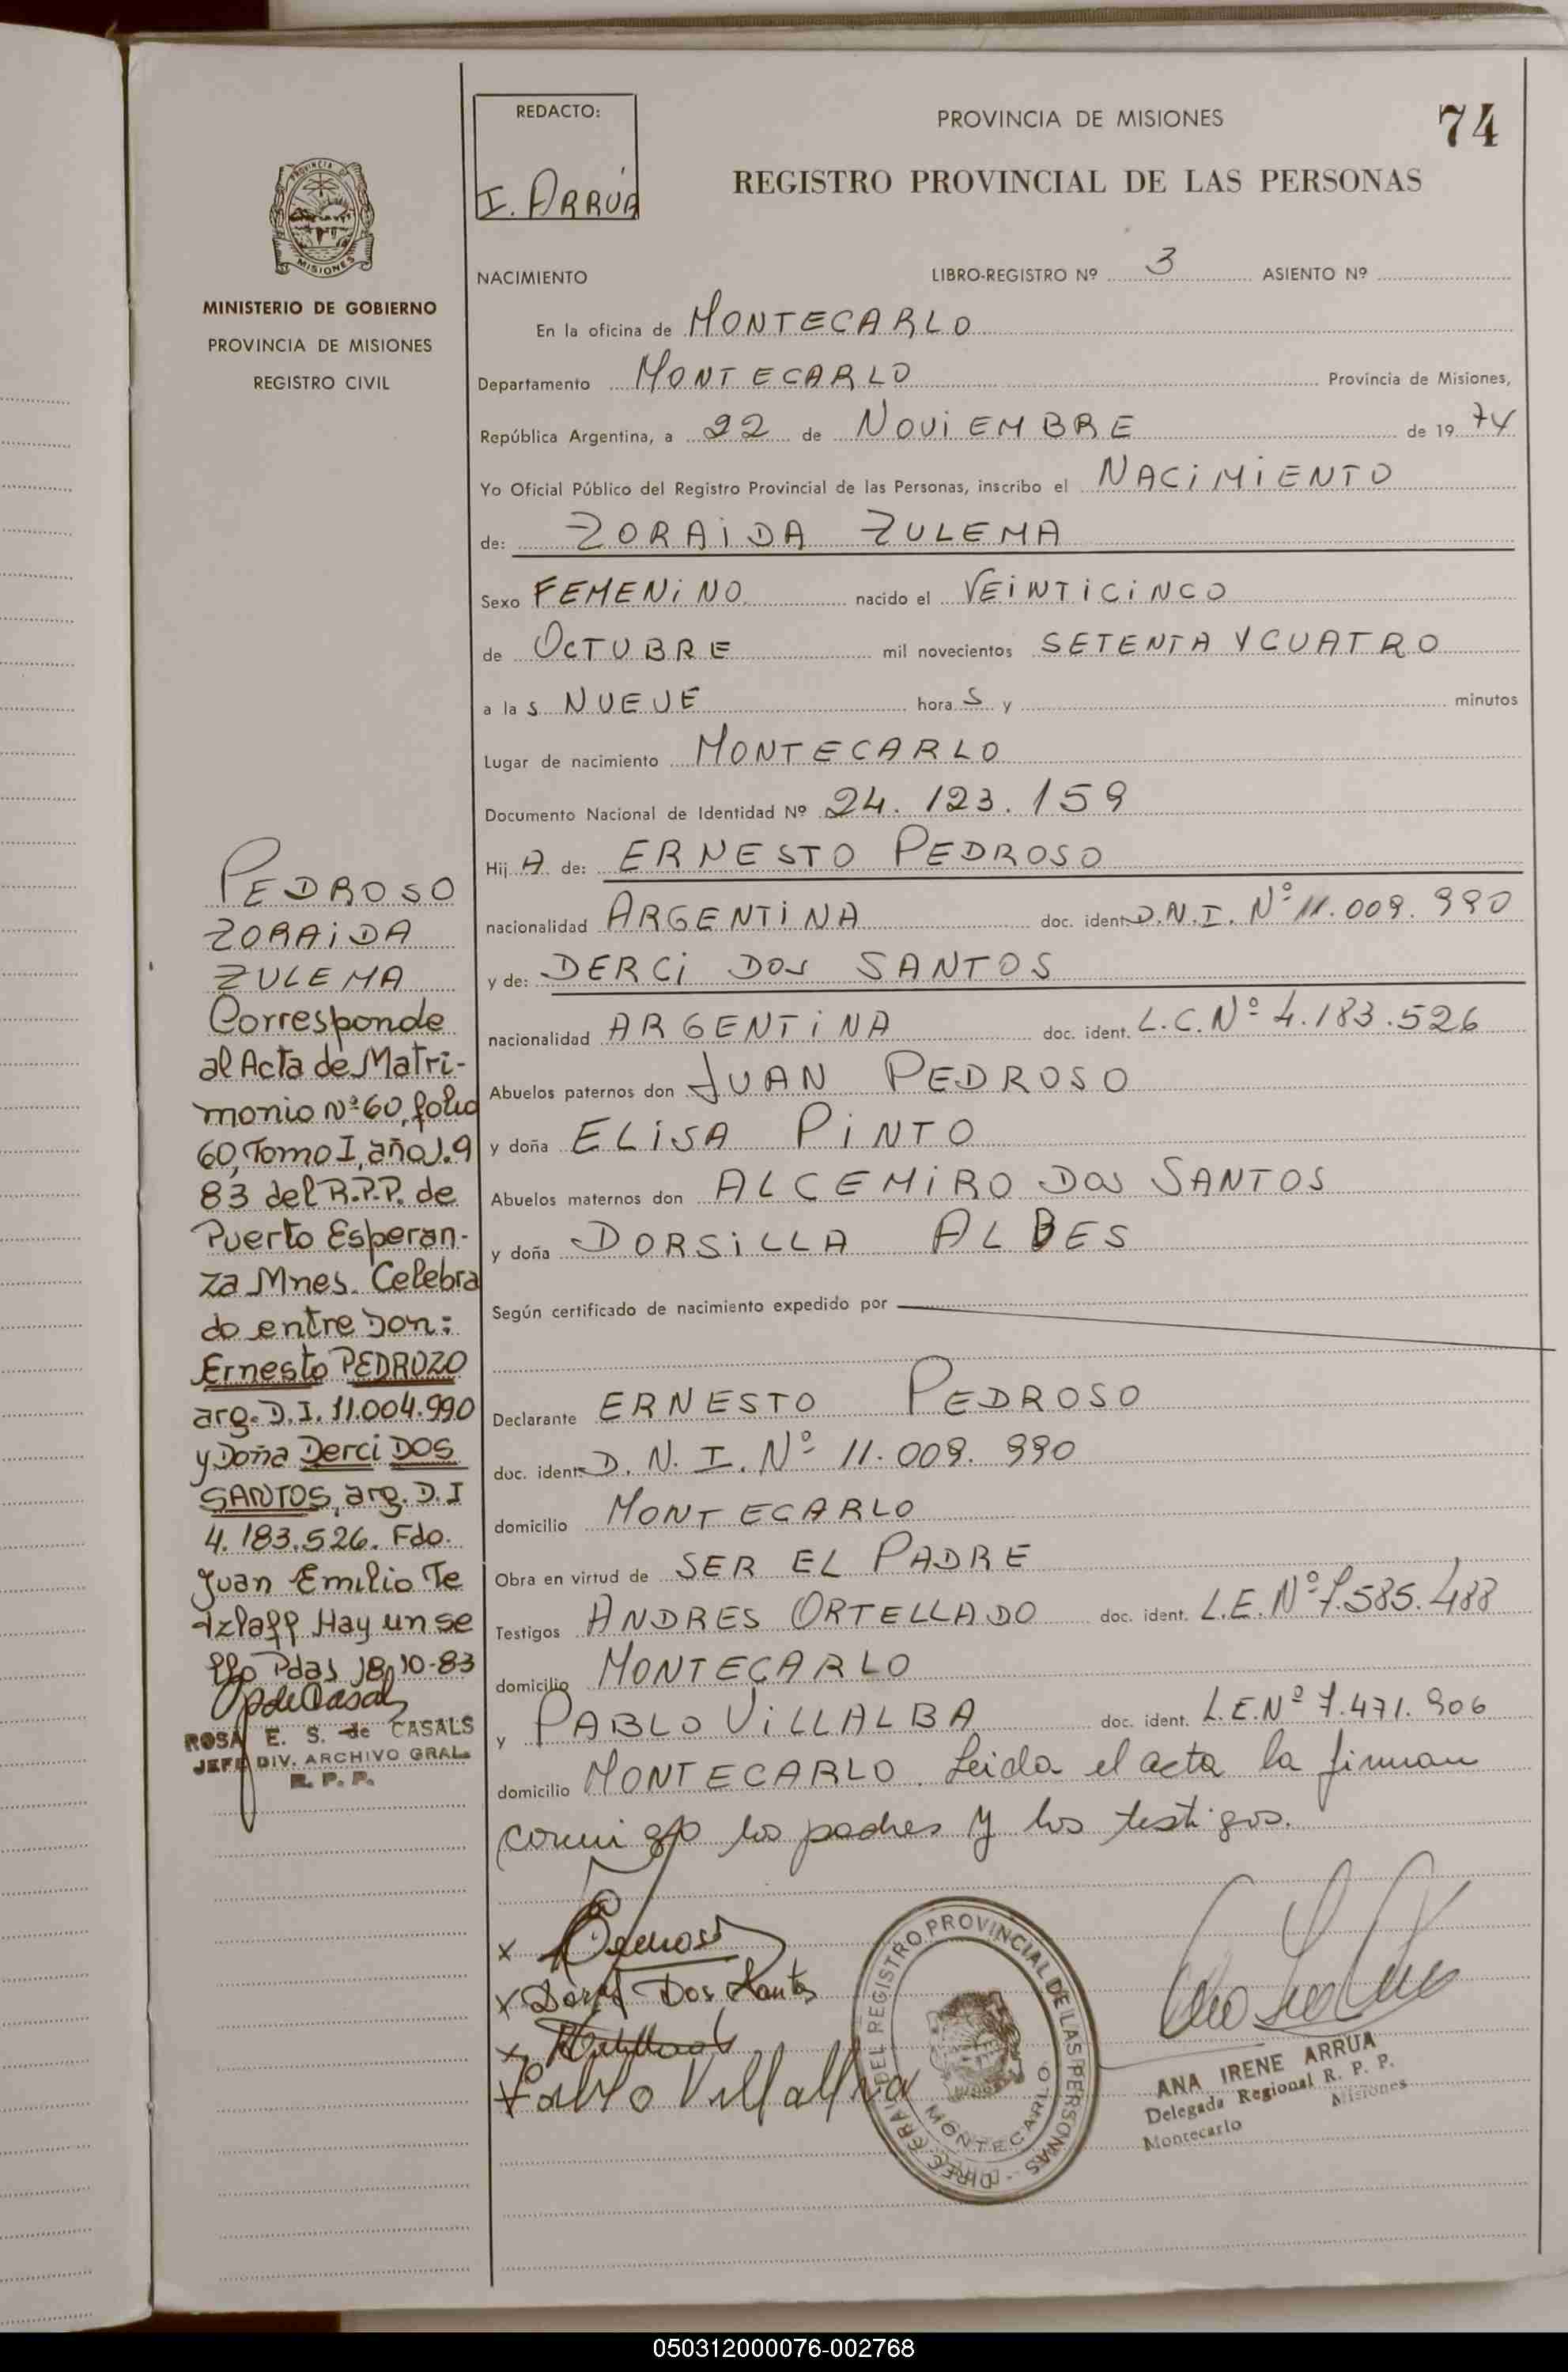 REDACTO:
I. ARRÚA
PROVINCIA DE MISIONES
74
REGISTRO PROVINCIAL DE LAS PERSONAS
PROVINCIA
MISIONES
MINISTERIO DE GOBIERNO
PROVINCIA DE MISIONES
REGISTRO CIVIL
NACIMIENTO LIBRO-REGISTRO Nº 3 ASIENTO Nº
En la oficina de MONTECARLO
Departamento MONTECARLO Provincia de Misiones,
República Argentina, a 22 de NOViEMBRE de 1974
Yo Oficial Público del Registro Provincial de las Personas, inscribo el NACiMiENTO
de: ZORAiDA ZULEMA
Sexo FEMENiNO nacido el VEiNTiCiNCO
de OCTUBRE mil novecientos SETENTA Y CUATRO
a las NUEVE horas y minutos
Lugar de nacimiento MONTECARLO
Documento Nacional de Identidad Nº 24.123.159
HijA de: ERNESTO PEDROSO
nacionalidad ARGENTiNA doc. ident. D.N.I. Nº 11.009.990
y de: DERCi DOS SANTOS
nacionalidad ARGENTiNA doc. ident. L.C. Nº 4.183.526
Abuelos paternos don JUAN PEDROSO
y doña ELiSA PiNTO
Abuelos maternos don ALCEMiRO DOS SANTOS
y doña DORSiLLA ALBES
Según certificado de nacimiento expedido por
Declarante ERNESTO PEDROSO
doc. ident. D.N.I. Nº 11.009.990
domicilio MONTECARLO
Obra en virtud de SER EL PADRE
Testigos ANDRES ORTELLADO doc. ident. L.E. Nº 7.585.488
domicilio MONTECARLO
y PABLO ViLLALBA doc. ident. L.E. Nº 7.471.906
domicilio MONTECARLO. Leida el acta la firman
conmigo los padres y los testigos.
PEDROSO
ZORAiDA
ZULEMA
Corresponde
al Acta de Matri-
monio Nº 60, folio
60, Tomo I, año 1.9
83 del R.P.P. de
Puerto Esperan-
za Mnes. Celebra
do entre Don:
Ernesto PEDROZO
arg. D.I. 11.004.990
y Doña Derci DOS
SANTOS, arg. D.I
4.183.526. Fdo.
Juan Emilio Te
tzlaff Hay un se
llo Pdas 18-10-83
ROSA E. S. de CASALS
JEFE DIV. ARCHIVO GRAL.
R. P. P.
x Pedroso
x Derci Dos Santos
x
x Pablo Villalba
DIREC. GRAL. DEL REGISTRO PROVINCIAL DE LAS PERSONAS
MONTECARLO
ANA IRENE ARRUA
Delegada Regional R. P. P.
Montecarlo Misiones
050312000076-002768